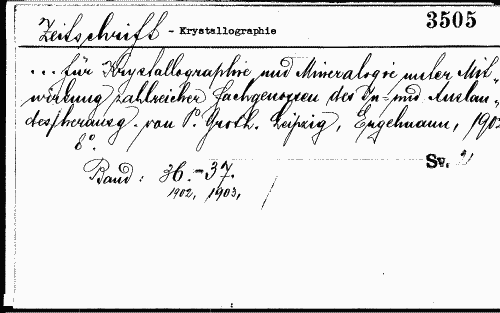 3505
Zeitschrift - Krystallographie
... für Krystallographie und Mineralogie unter Mit-
wirkung zahlreicher Fachgenossen des In- und Auslan-
des/herausg. von P. Groth. Leipzig, Engelmann, 1902
8°.
Sv.
Band: 36.-37.
1902, 1903,